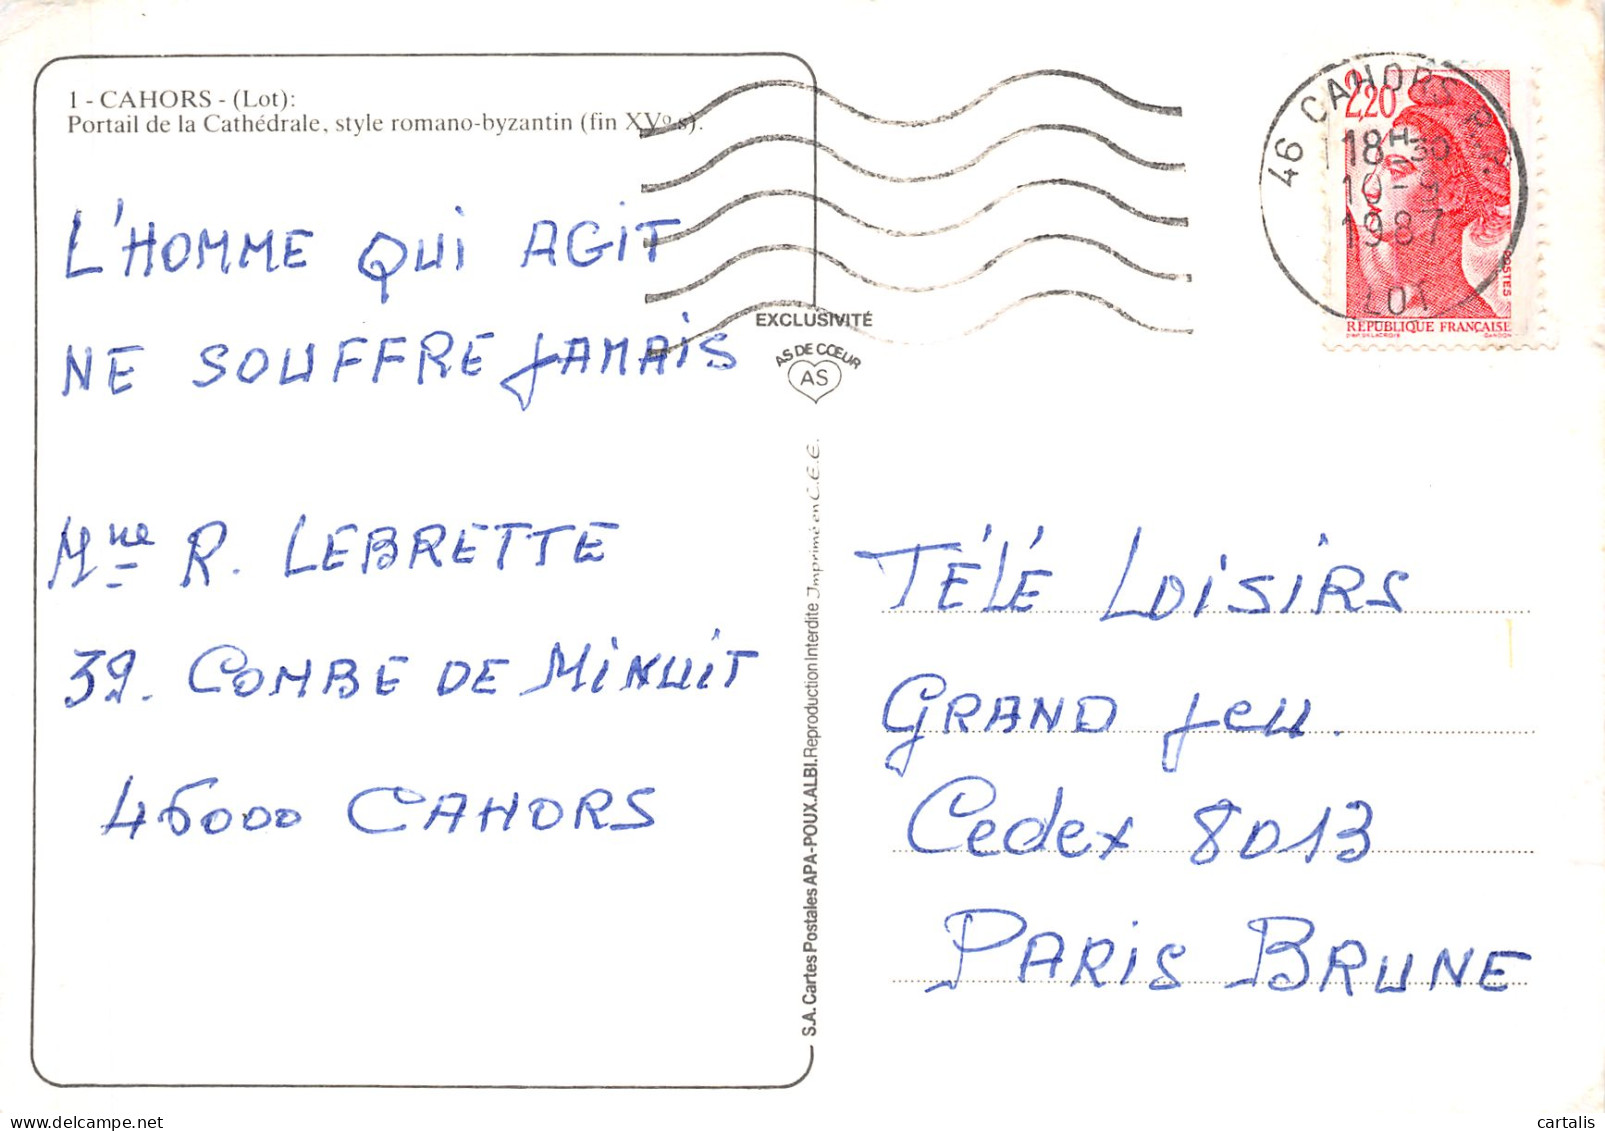 1 - CAHORS - (Lot):
Portail de la Cathédrale, style romano-byzantin (fin XVº s).
L'HOMME QUI AGIT
NE SOUFFRE JAMAIS
Mme R. LEBRETTE
39. COMBE DE MINUIT
46000 CAHORS
EXCLUSIVITÉ
AS DE CŒUR
AS
S.A. Cartes Postales APA-POUX. ALBI. Reproduction Interdite Imprimé en C.E.E.
46 CAHORS
18H-30
10-
1987
LOT
2,20
POSTES
RÉPUBLIQUE FRANÇAISE
TÉLÉ LOISIRS
GRAND Jeu.
Cedex 8013
PARIS BRUNE
cartalis
www.delcampe.net